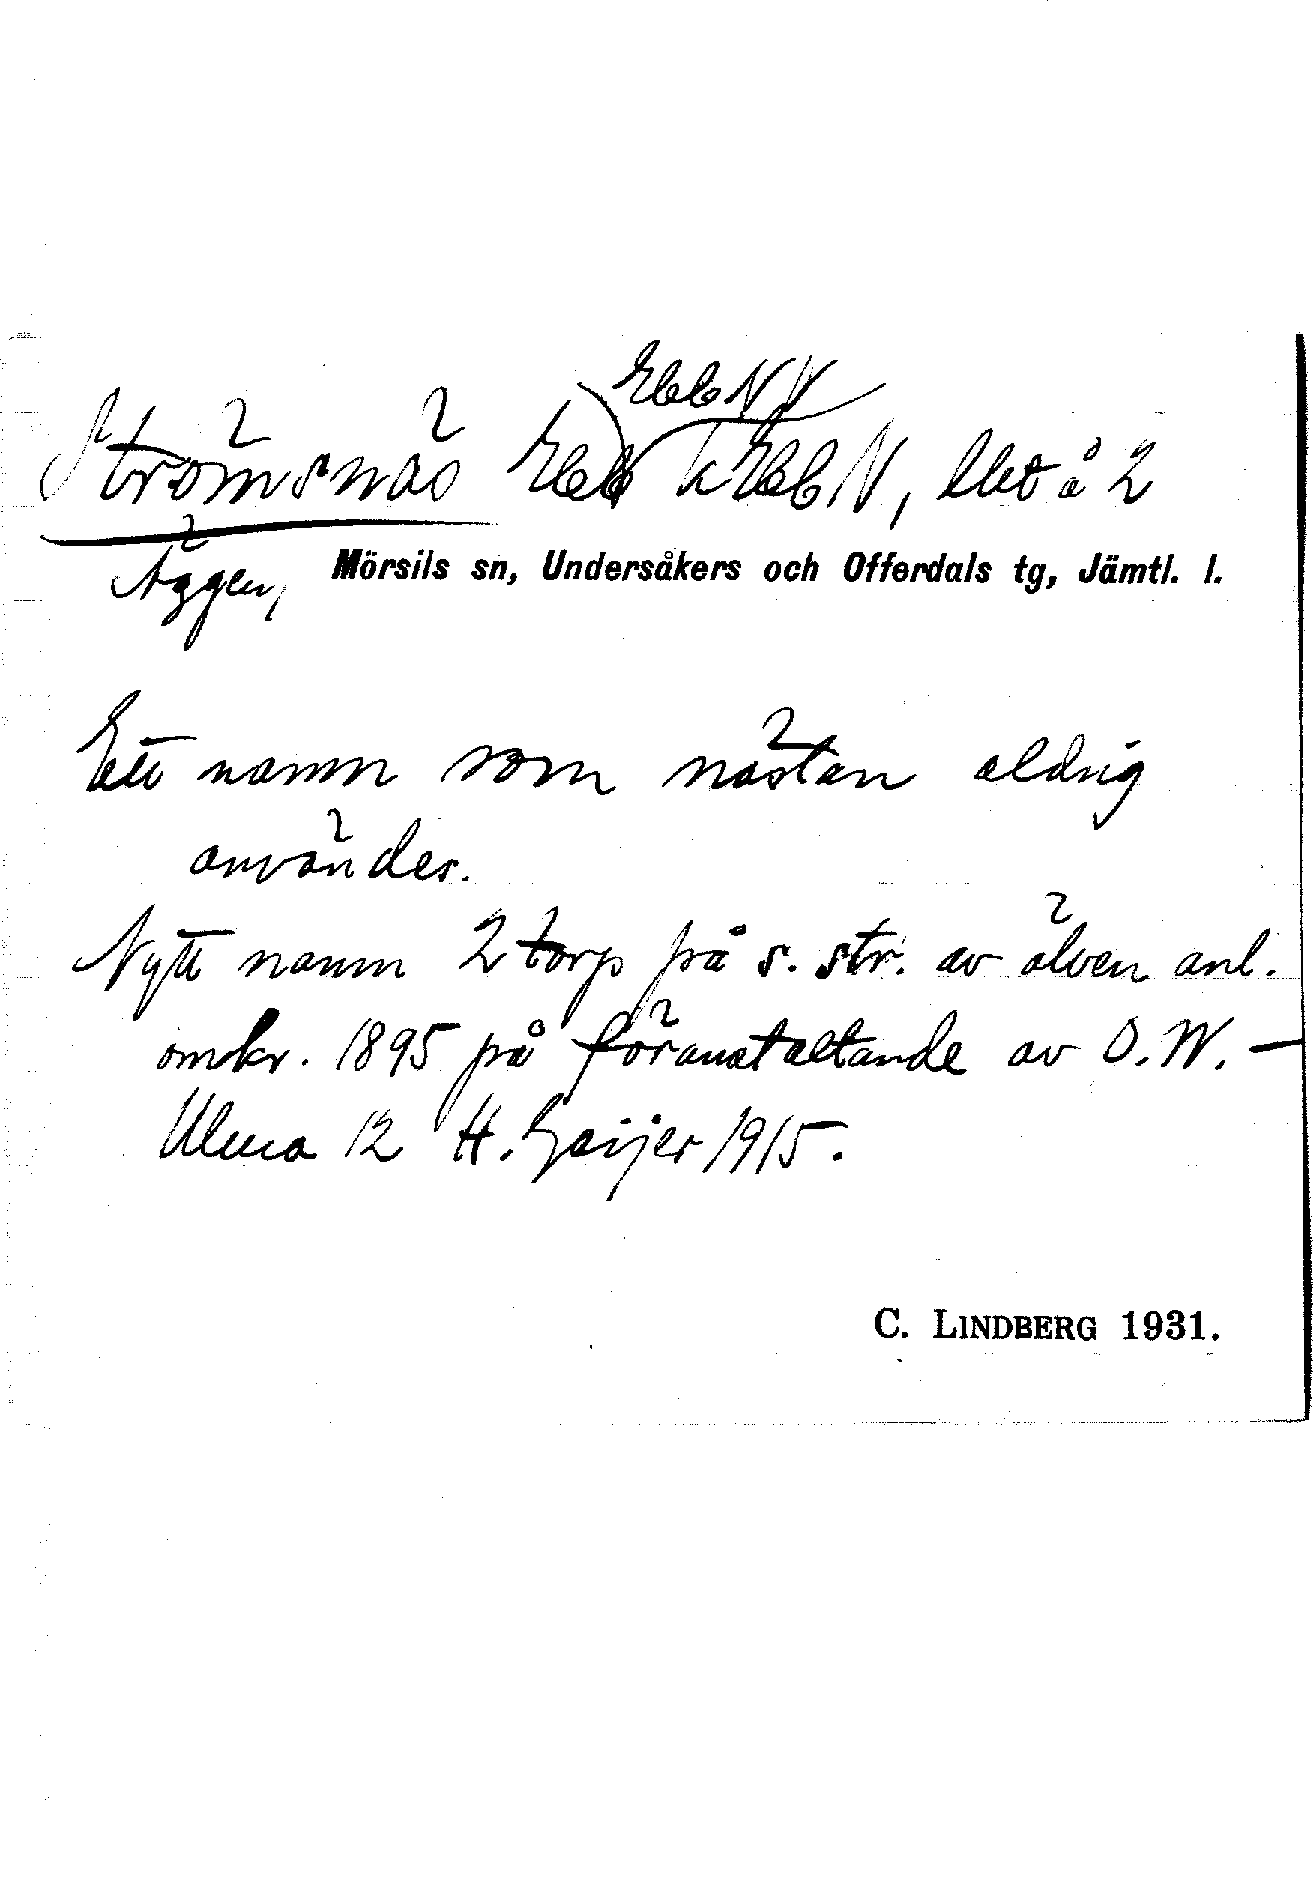 Strömsnäs
Äggen, Mörsils sn, Undersåkers och Offerdals tg, Jämtl. l.
Ett namn som nästan aldrig
användes.
Nytt namn 2 torp på s. str. av älven anl.
omkr. 1895 på föranstaltande av O.W. —
Ulma 12 H. Geijer 1915.
C. LINDBERG 1931.